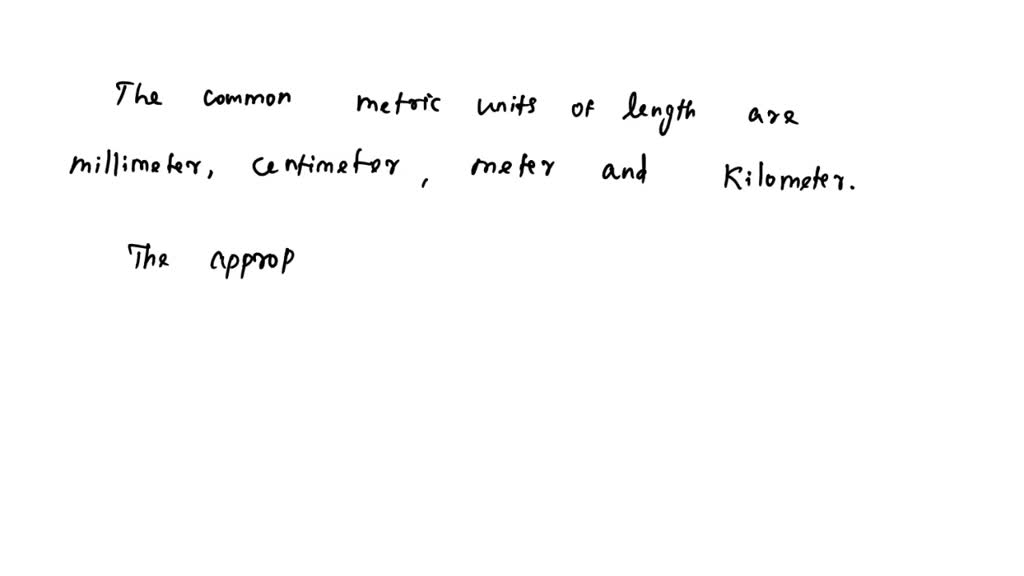 The common metric units of length are
millimeter, centimeter, meter and Kilometer.
The approp